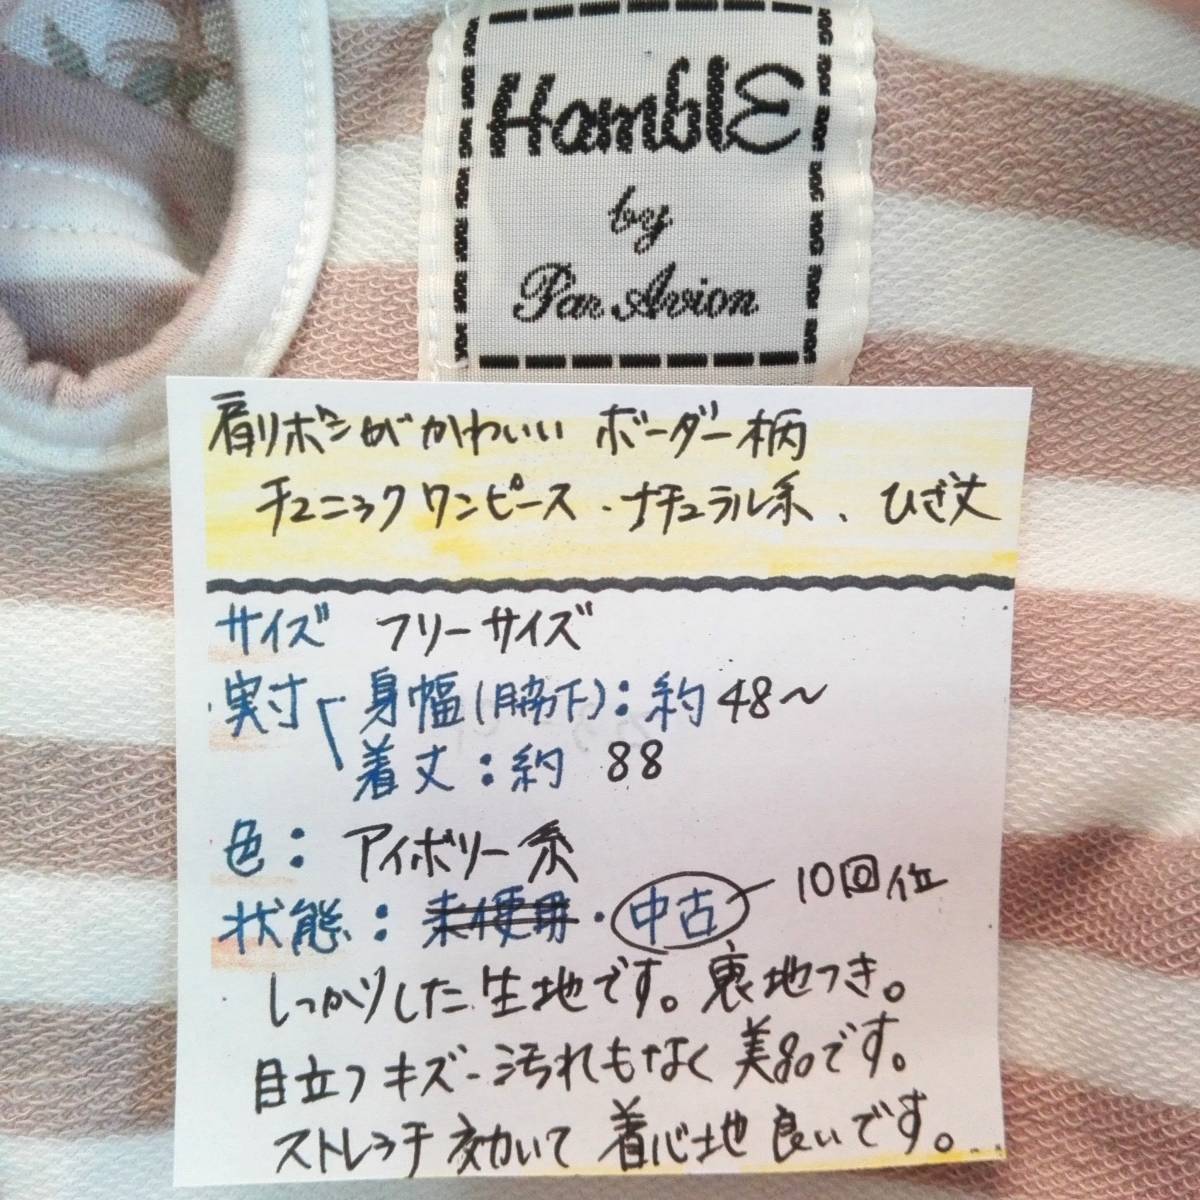 HamblE
by
Par Avion
肩リボンがかわいい ボーダー柄
チュニックワンピース・ナチュラル系、ひざ丈
サイズ フリーサイズ
実寸 身幅(脇下):約48〜
着丈:約 88
色: アイボリー系
状態: 未使用・中古 10回位
しっかりした生地です。裏地つき。
目立つキズ-汚れもなく美品です。
ストレッチ効いて着心地良いです。